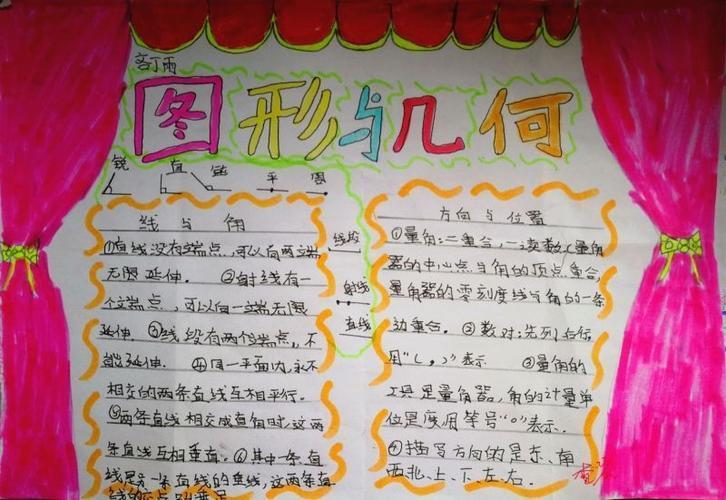 丁雨
图形与几何
锐 直 钝 平 周
线与角
①直线没有端点,可以向两端
无限延伸. ②射线有一
个端点,可以向一端无限
延伸. ③线段有两个端点,不
能延伸. ④同一平面内,永不
相交的两条直线互相平行.
⑤两条直线相交成直角时,这两
条直线互相垂直.⑥其中一条直
线是另一条直线的垂线,这两条直
线的
线段
射线
直线
方向与位置
①量角:二重合,一读数(量角
器的中心点与角的顶点重合,
量角器的零刻度线与角的一条
边重合. ②数对:先列后行,
用“( , )”表示 ③量角的
工具是量角器,角的计量单
位是度用符号“°”表示.
④描写方向的是东、南
西北、上、下、左、右.